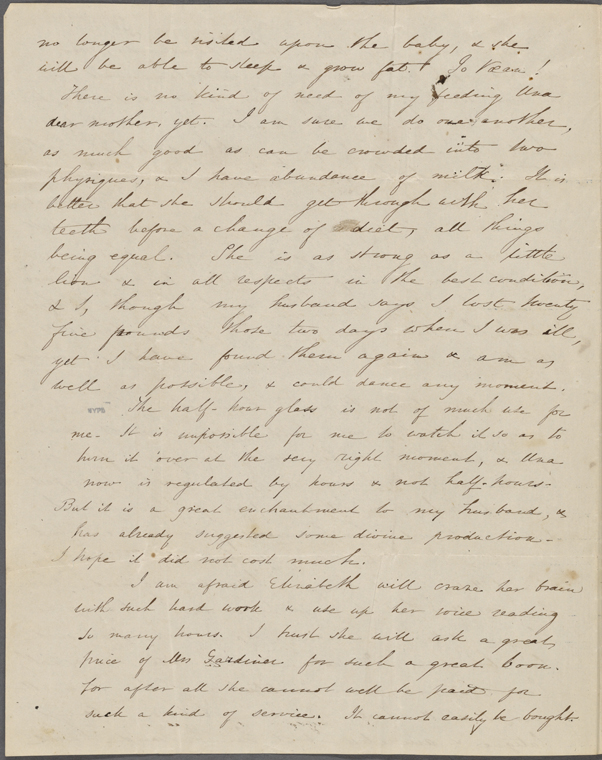 no longer be visited upon the baby, & she
will be able to sleep & grow fat. Io Paean!
There is no kind of need of my feeding Una
dear mother, yet. I am sure we do one another,
as much good as can be crowded into two
physiques, & I have abundance of milk. It is
better that she should get through with her
teeth before a change of diet, all things
being equal. She is as strong as a little
lion & in all respects in the best condition,
& I, though my husband says I lost twenty
five pounds those two days when I was ill,
yet I have found them again & am as
well as possible, & could dance any moment.
The half-hour glass is not of much use for
me. It is impossible for me to watch it so as to
turn it over at the very right moment, & Una
now is regulated by hours & not half-hours.
But it is a great enchantment to my husband, &
has already suggested some divine production.
I hope it did not cost much.
I am afraid Elizabeth will craze her brain
with such hard work & use up her voice reading
so many hours. I trust she will ask a great
price of Mrs Gardiner for such a great boon.
For after all she cannot well be paid for
such a kind of service. It cannot easily be bought.